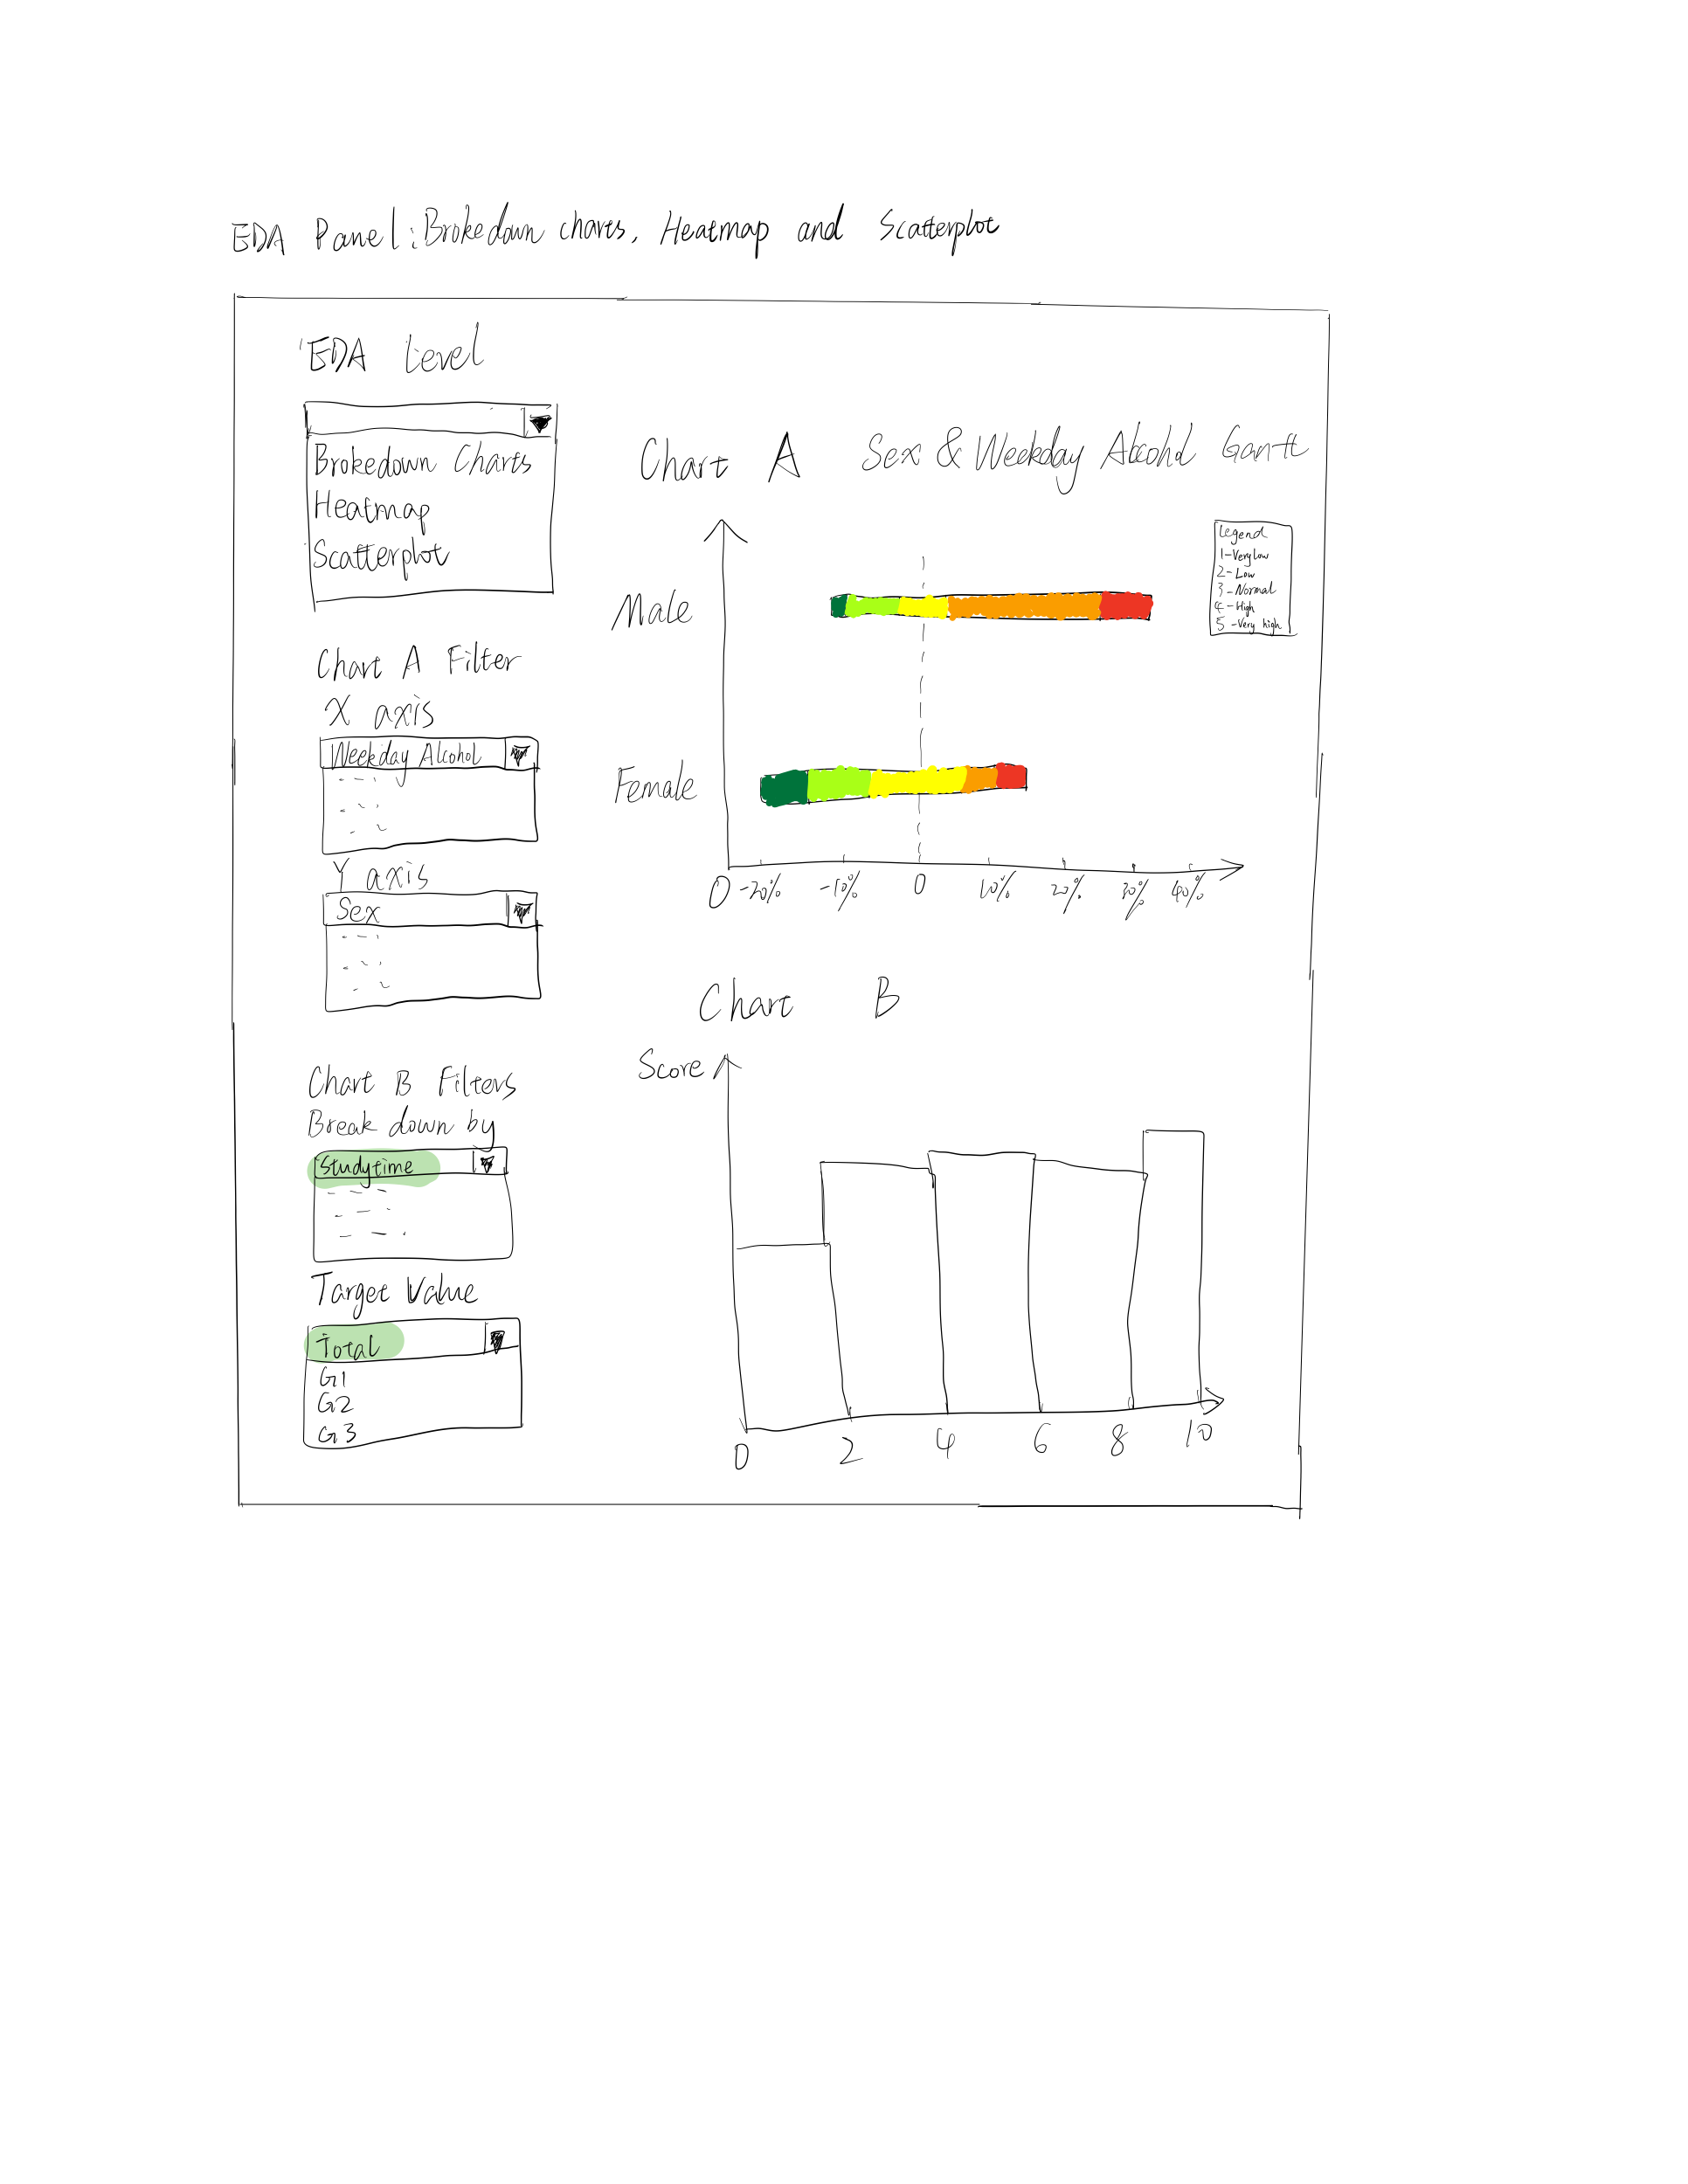 EDA Panel: Brokedown charts, Heatmap and Scatterplot
EDA Level
Brokedown Charts
Heatmap
Scatterplot
Chart A Filter
X axis
Weekday Alcohol
Y axis
Sex
Chart B Filters
Break down by
Studytime
Target Value
Total
G1
G2
G3
Chart A Sex & Weekday Alcohol Gantt
Legend
1-Very low
2-Low
3-Normal
4-High
5-Very high
Male
Female
0 -20% -10% 0 10% 20% 30% 40%
Chart B
Score
0 2 4 6 8 10